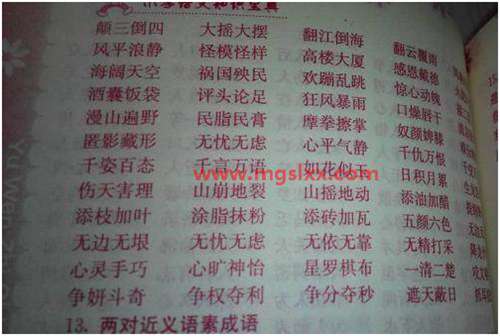 小学语文知识宝典
颠三倒四 大摇大摆 翻江倒海 翻云覆雨
风平浪静 怪模怪样 高楼大厦 感恩戴德
海阔天空 祸国殃民 欢蹦乱跳 惊心动魄
酒囊饭袋 评头论足 狂风暴雨 口燥唇干
漫山遍野 民脂民膏 摩拳擦掌 奴颜婢膝
匿影藏形 无忧无虑 心平气静 千仇万恨
千姿百态 千言万语 如花似玉 日积月累
www.mgslxx.com
伤天害理 山崩地裂 山摇地动 添油加醋
添枝加叶 涂脂抹粉 添砖加瓦 五颜六色
无边无垠 无忧无虑 无依无靠 无精打采
心灵手巧 心旷神怡 星罗棋布 一清二楚
争妍斗奇 争权夺利 争分夺秒 遮天蔽日
13. 两对近义语素成语